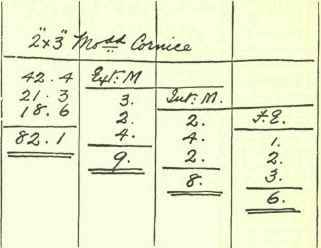 2"x3" Mo.dd Cornice
42.4 Ext: M
21.3 3. Int: M.
18.6 2. 2. F.E.
82.1 4. 4. 1.
9. 2. 2.
8. 3.
6.